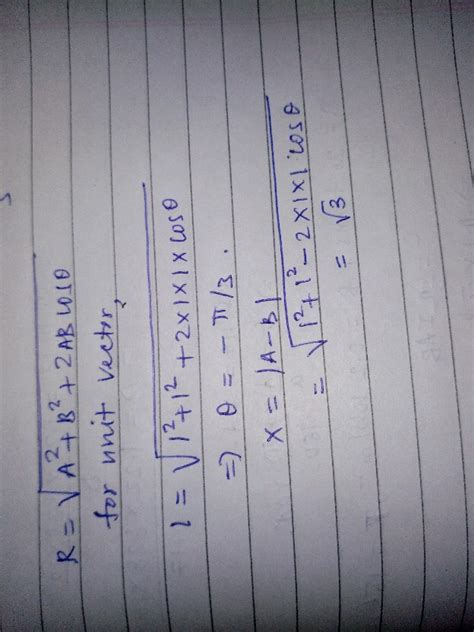 R = √A²+B²+2AB cosθ
for unit vector,
1 = √1²+1²+2×1×1×cosθ
⇒ θ = -π/3.
x = |A-B|
= √1²+1²-2×1×1.cosθ
= √3